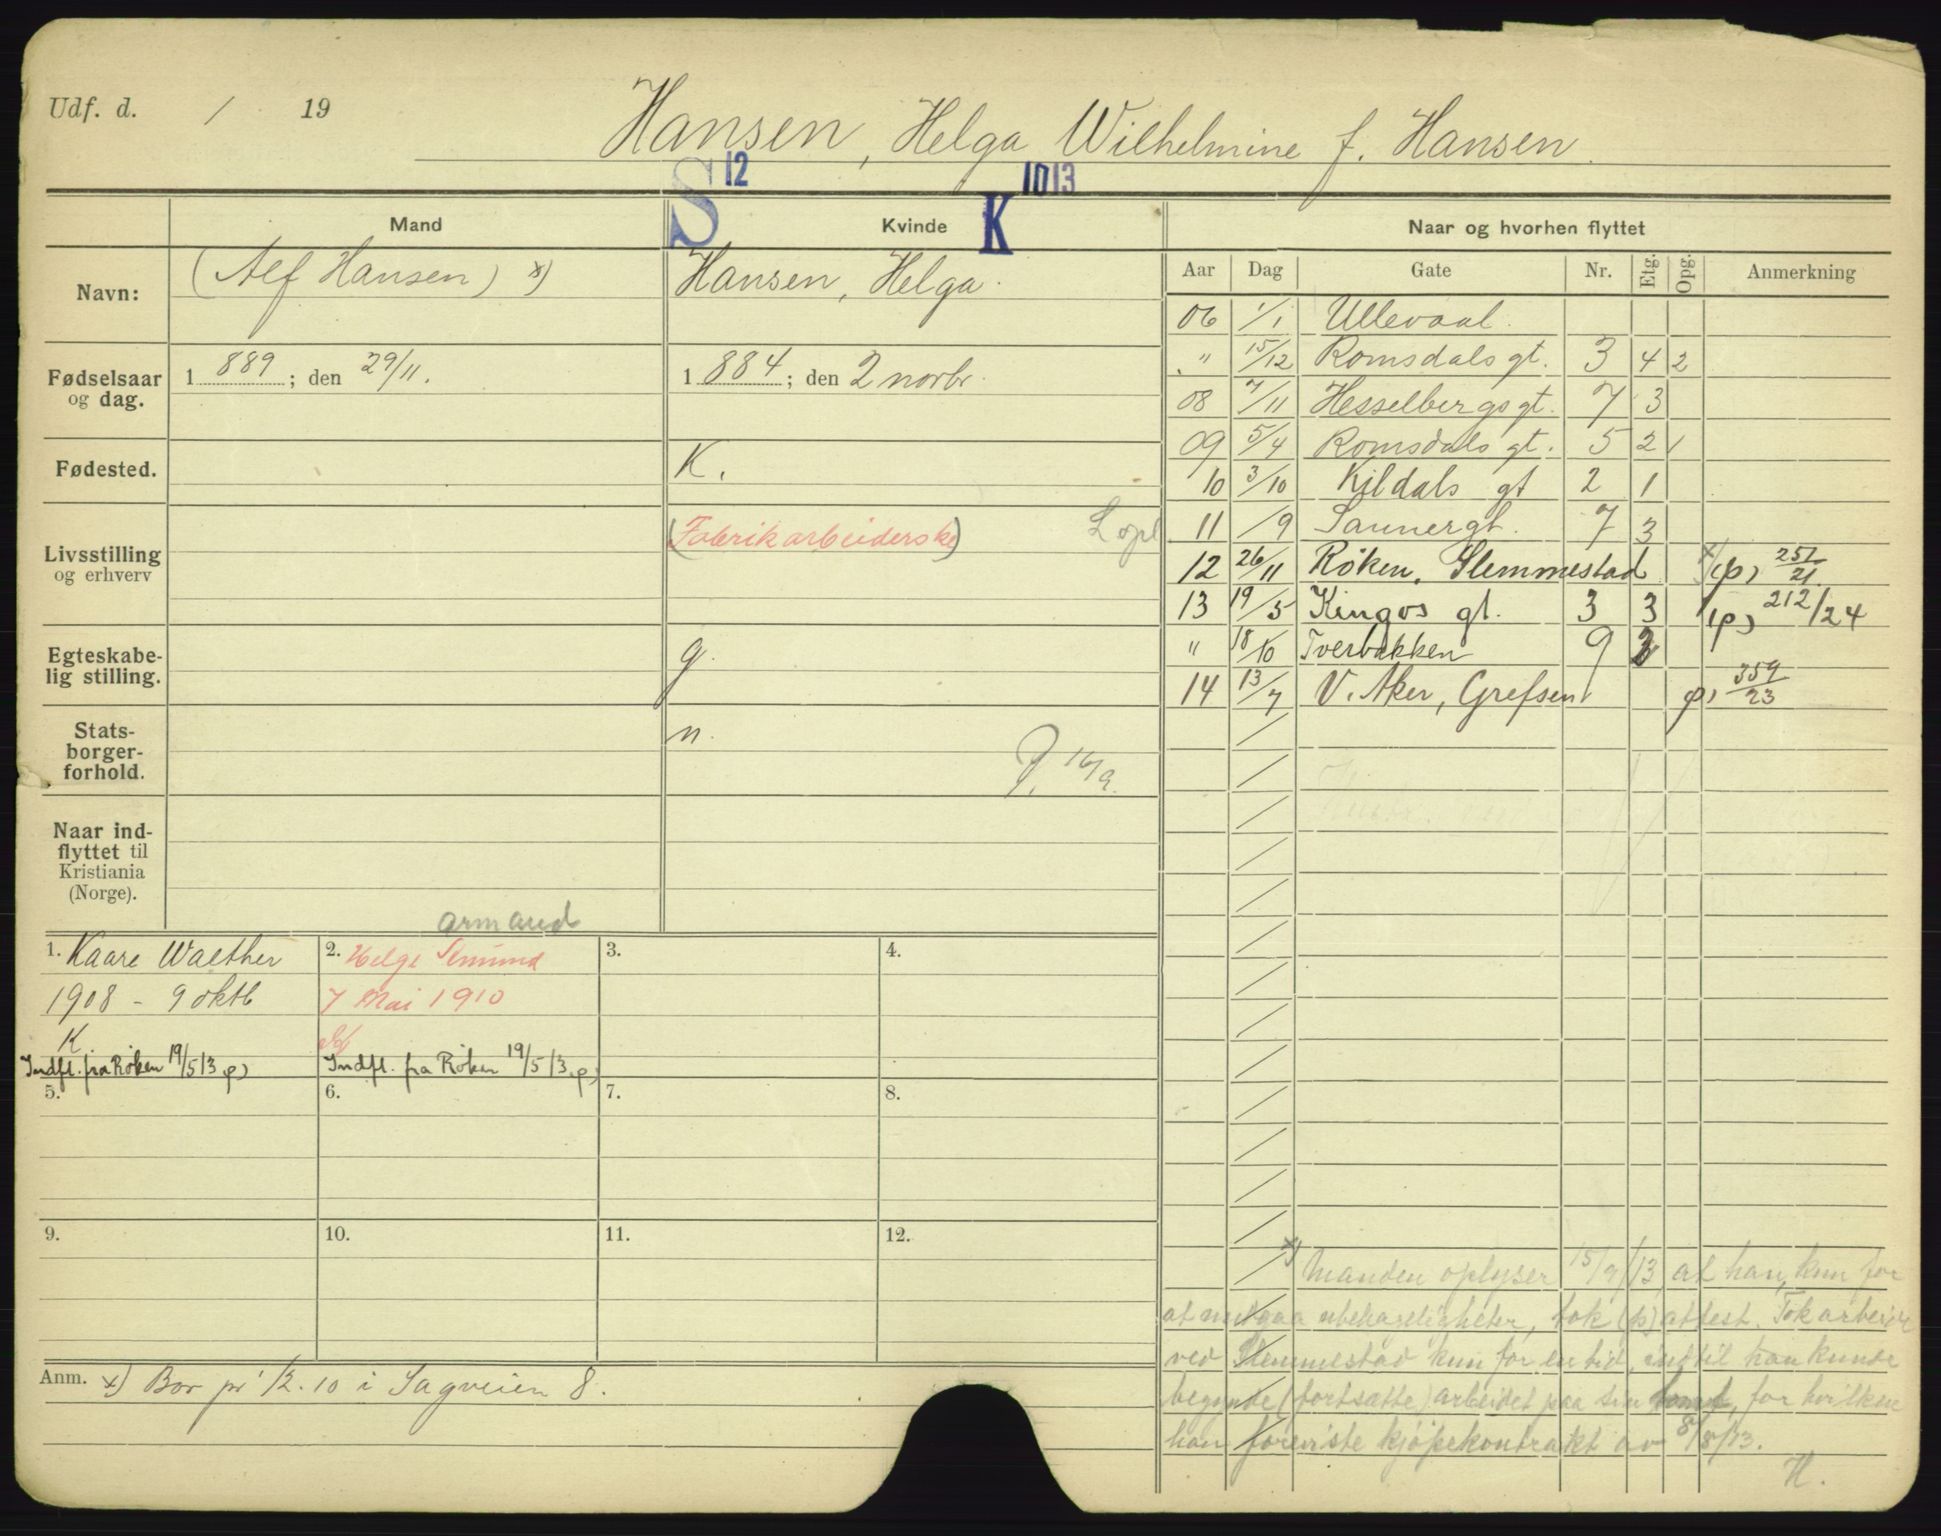 Udf. d. / 19
Hansen, Helga Wilhelmine f. Hansen.
S 12
K 1013
Mand
Kvinde
Naar og hvorhen flyttet
Navn:
(Alf Hansen) x)
Hansen, Helga.
Aar Dag Gate Nr. Etg. Opg. Anmerkning
06 1/1 Ullevaal.
" 15/12 Romsdals gt. 3 4 2
08 7/11 Hesselbergs gt. 7 3
09 5/4 Romsdals gt. 5 2 1
10 3/10 Kildals gt 2 1
11 /9 Sannergt. 7 3
12 26/11 Røken. Slemmestad x) (p) 251/21
13 19/5 Kingos gt. 3 3 (p) 212/24
" 18/10 Tverbakken 9 2
14 13/7 V. Aker, Grefsen p) 359/23
Fødselsaar og dag.
1 889 ; den 29/11.
1 884 ; den 2 novbr.
Fødested.
K.
Livsstilling og erhverv
(Fabrikarbeiderske)
L opl
Egteskabe-
lig stilling.
g.
Stats-
borger-
forhold.
n.
16/9.
Naar ind-
flyttet til
Kristiania
(Norge).
armand
1. Kaare Walther
1908 - 9 oktb
K.
Indfl. fra Røken 19/5 13 p)
2. Helge
7 Mai 1910
Indfl. fra Røken 19/5 13 p)
3.
4.
5.
6.
7.
8.
9.
10.
11.
12.
Anm. x) Bor pr 1/2.10 i Sagveien 8.
x) Manden oplyser 15/9/13, at han, kun for
at undgaa ubehageligheter, tok (p) attest. Tok arbeide
ved Slemmestad kun for en tid, indtil han kunde
begynde (fortsætte) arbeidet paa sin tomt, for hvilken
han foreviste kjøpekontrakt av 8/8/13.
H.